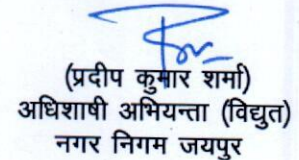 (प्रदीप कुमार शर्मा)
अधिशाषी अभियन्ता (विद्युत)
नगर निगम जयपुर